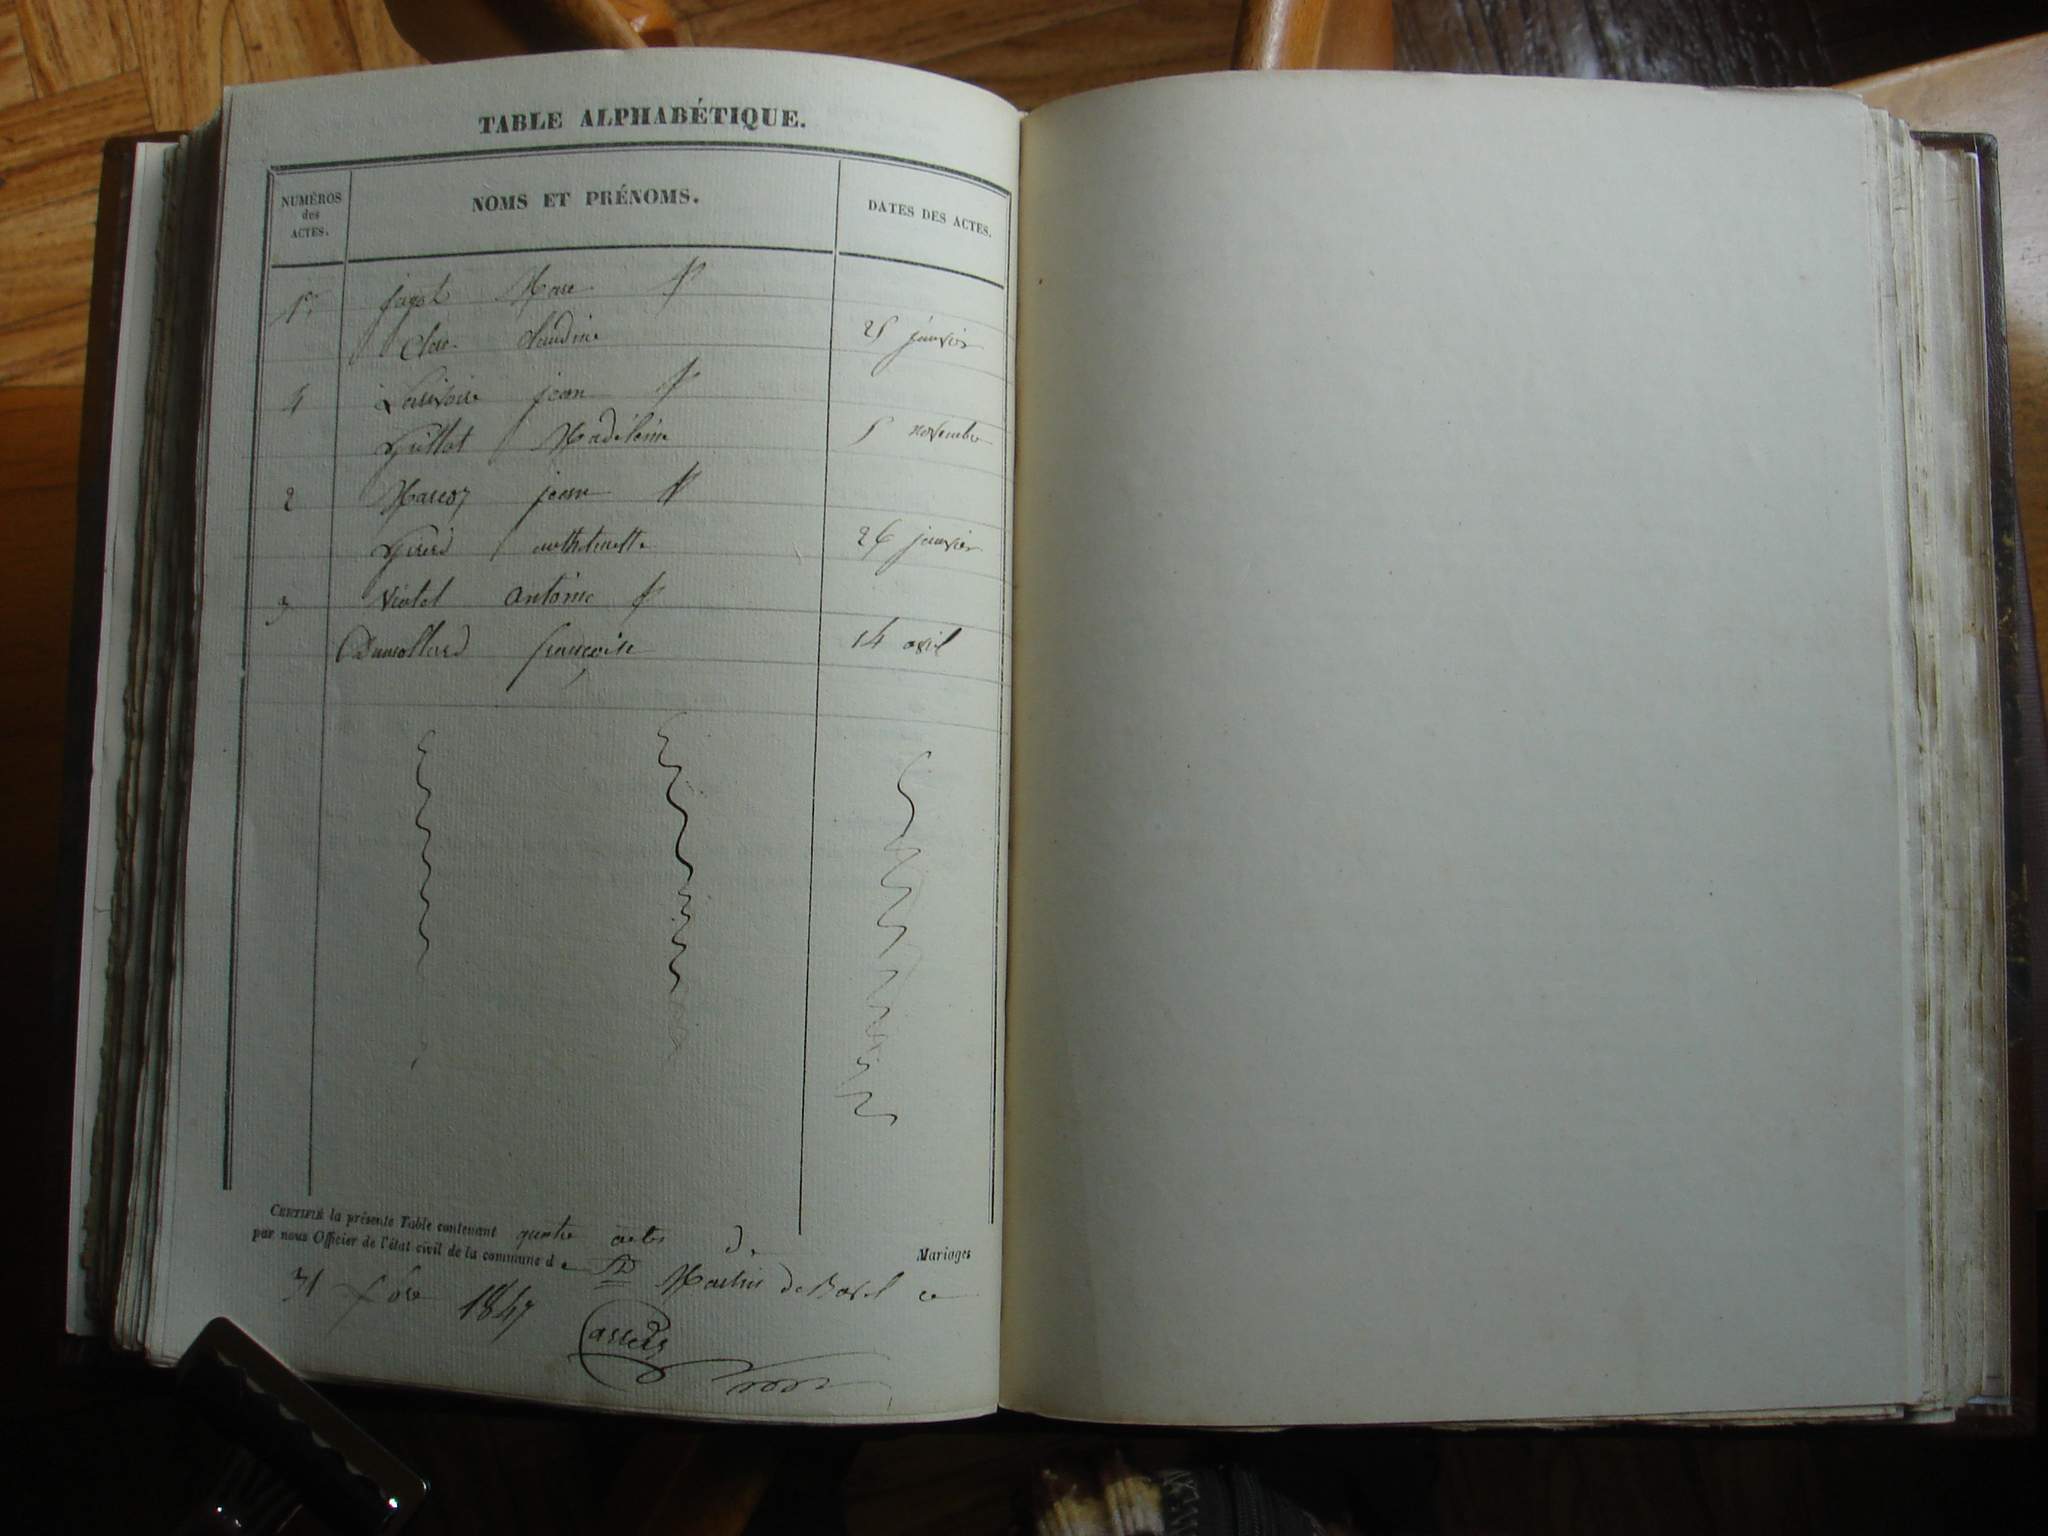 TABLE ALPHABÉTIQUE.
NUMÉROS
des
ACTES.
NOMS ET PRÉNOMS.
DATES DES ACTES.
1er Marc
Claudine 25 janvier
4 jean
Guillot Madeleine 5 novembre
2 Marcoz jean
Girerd anthoinette 26 janvier
3 Violet antoine
Dumollard françoise 14 avril
CERTIFIÉ la présente Table contenant quatre actes de Mariages
par nous Officier de l'état civil de la commune de St Martin de Bavel ce
31 Xbre 1847